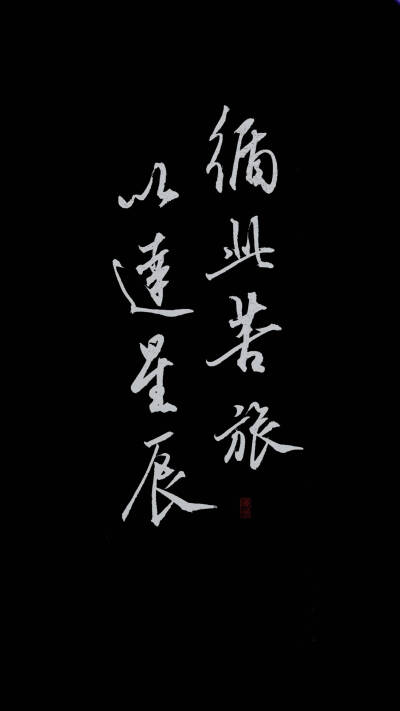 循此苦旅
以達星辰